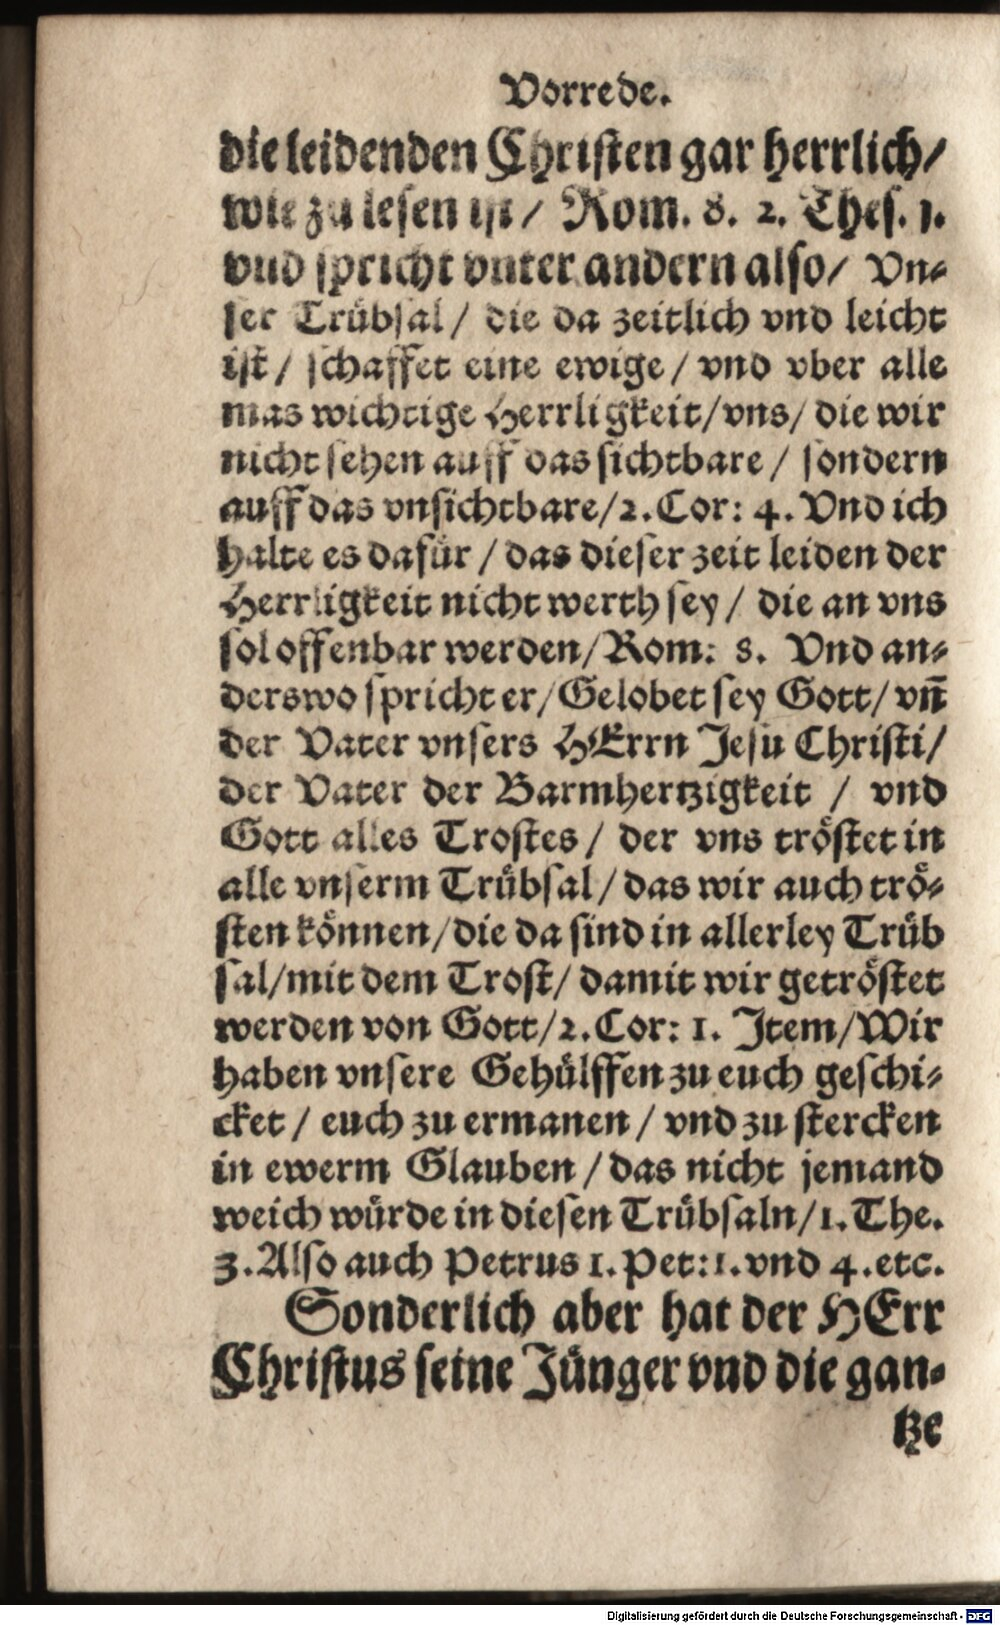 Vorrede.
die leidenden Christen gar herrlich/
wie zu lesen ist / Rom. 8. 2. Thes. 1.
vnd spricht vnter andern also/ Vn-
ser Trübsal / die da zeitlich vnd leicht
ist / schaffet eine ewige / vnd vber alle
mas wichtige Herrligkeit/vns/ die wir
nicht sehen auff das sichtbare / sondern
auff das vnsichtbare/2.Cor: 4. Vnd ich
halte es dafür / das dieser zeit leiden der
Herrligkeit nicht werth sey / die an vns
sol offenbar werden/Rom: 8. Vnd an-
derswo spricht er/Gelobet sey Gott/ vn̄
der Vater vnsers HErrn Jesu Christi/
der Vater der Barmhertzigkeit / vnd
Gott alles Trostes / der vns tröstet in
alle vnserm Trübsal / das wir auch trö-
sten können/die da sind in allerley Trüb
sal/mit dem Trost/ damit wir getröstet
werden von Gott/2.Cor: 1. Jtem/Wir
haben vnsere Gehülffen zu euch geschi-
cket / euch zu ermanen / vnd zu stercken
in ewerm Glauben / das nicht jemand
weich würde in diesen Trübsaln/1.The.
3.Also auch Petrus 1.Pet:1.vnd 4.etc.
Sonderlich aber hat der HErr
Christus seine Jünger vnd die gan-
tze
Digitalisierung gefördert durch die Deutsche Forschungsgemeinschaft - DFG